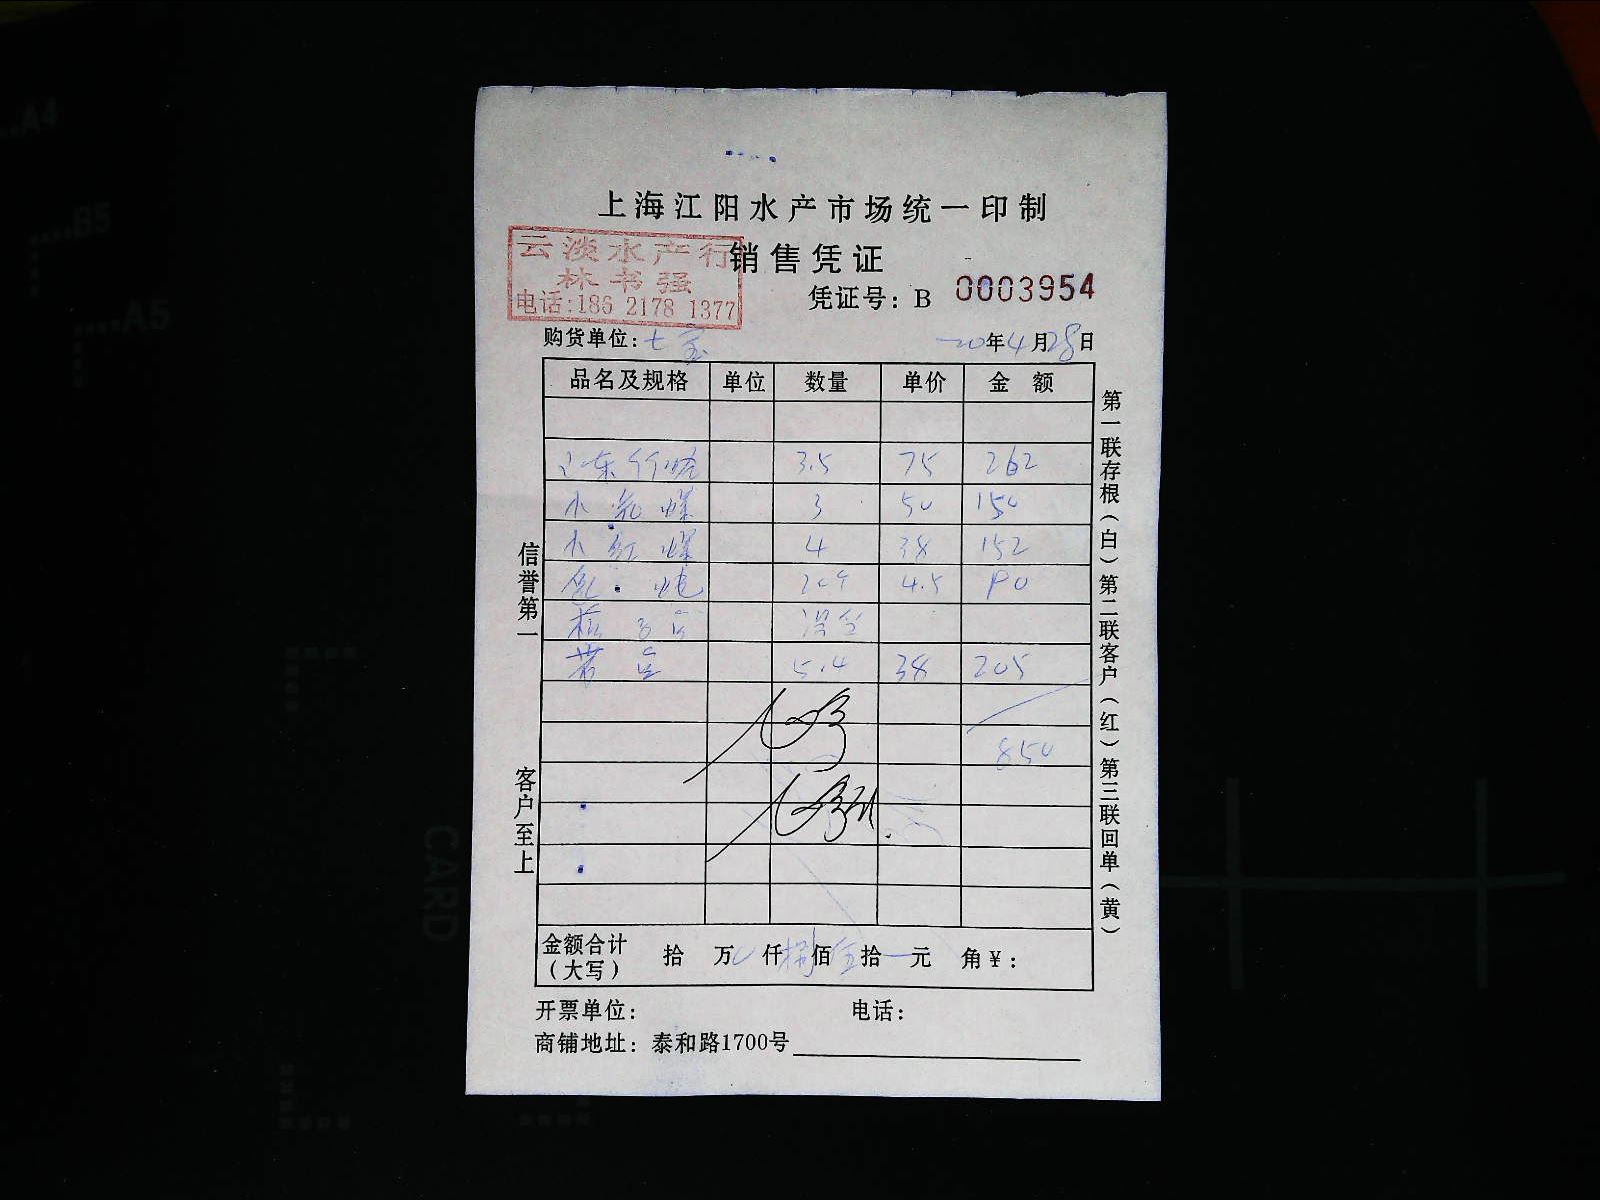 上海江阳水产市场统一印制
云淡水产行
林书强
电话:186 2178 1377
销售凭证
凭证号: B 0003954
购货单位: 七宝
20年4月28日
品名及规格 单位 数量 单价 金额
3.5 75 262
小 螺 3 50 150
小红螺 4 38 152
4.5 90
5.4 38 205
850
金额合计(大写) 拾 万 仟捌佰伍拾 元 角¥:
开票单位: 电话:
商铺地址: 泰和路1700号
信誉第一
客户至上
第一联存根(白)第二联客户(红)第三联回单(黄)
A4
B5
A5
CARD